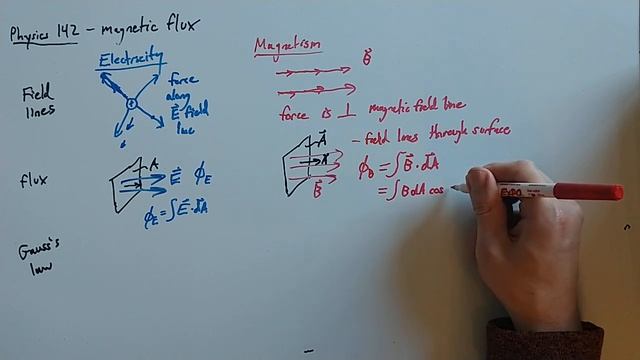 Physics 142 - magnetic flux
Electricity
Magnetism
Field
lines
+
force
along
E⃗ field
line
B⃗
force is ⊥ magnetic field line
- field lines through surface
flux
A
E⃗ ϕ_E
ϕ_E = ∫E⃗·d⃗A
A⃗
B⃗
ϕ_B = ∫B⃗·d⃗A
= ∫B dA cos
Gauss's
law
EXPO